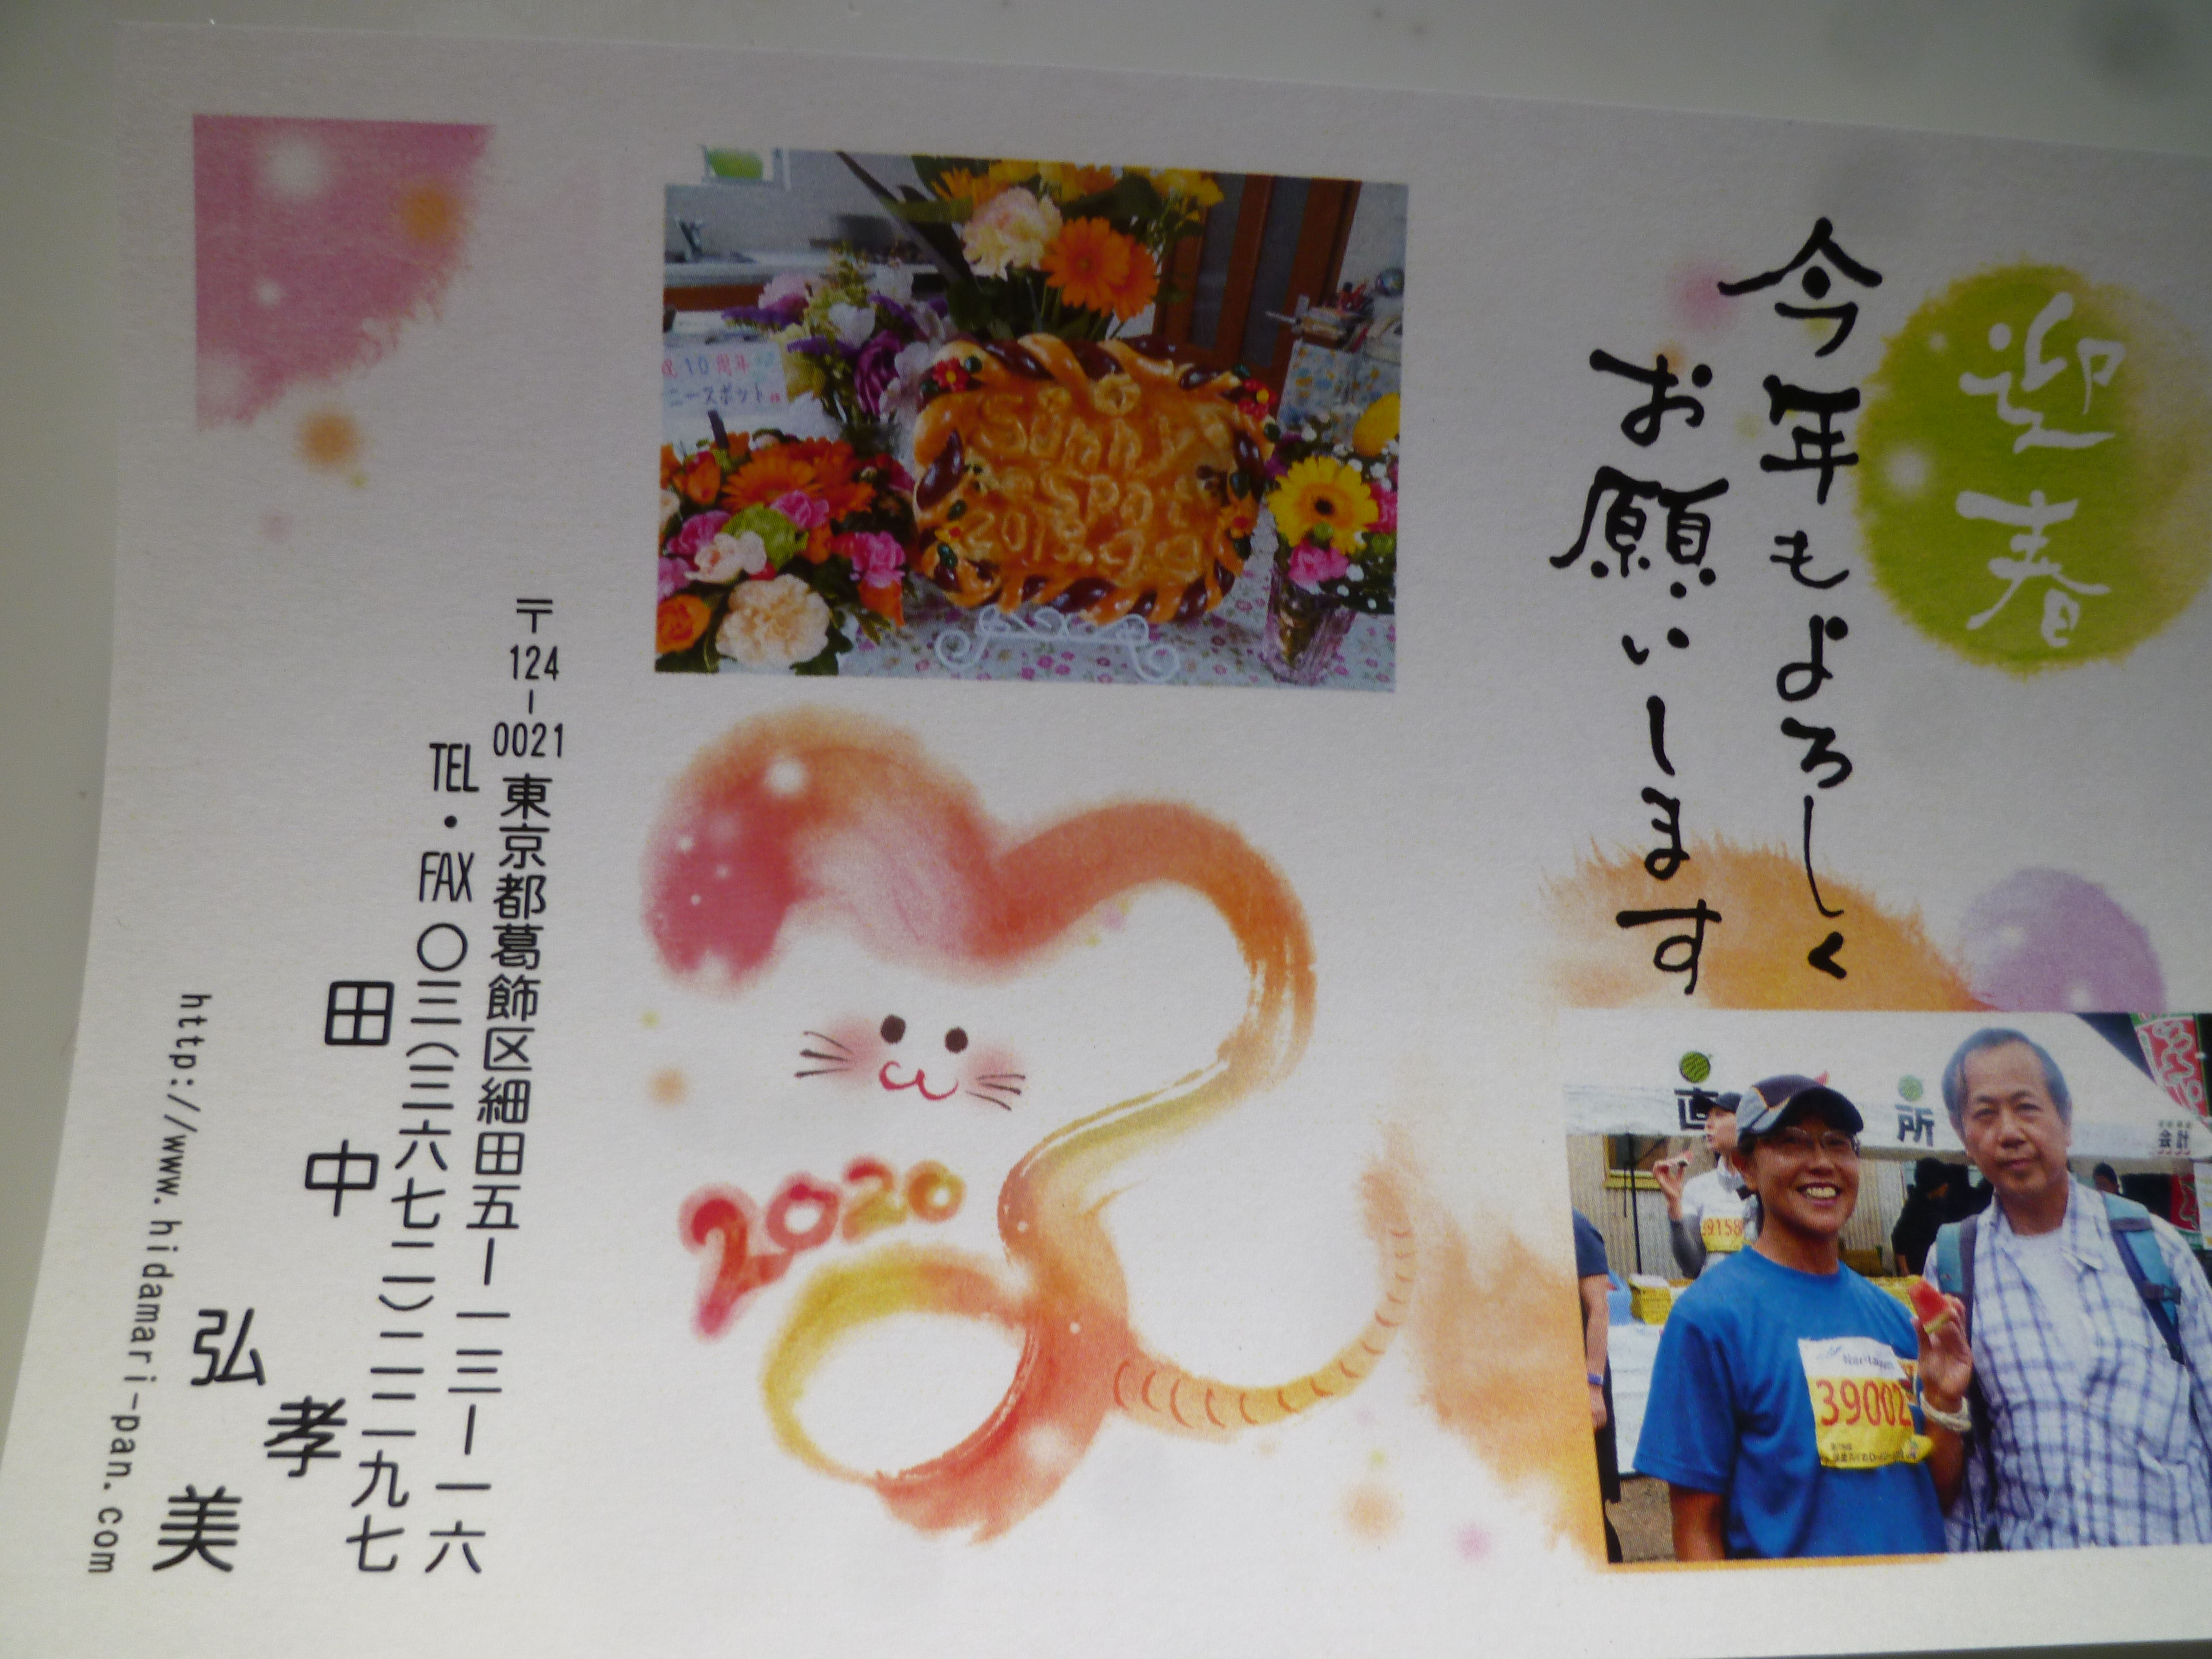 迎春
今年もよろしく
お願いします
直
所
会計
39002
10周年
ニースポット
Sunny
SPOT
2020
〒124-0021 東京都葛飾区細田五ー一三ー一六
TEL・FAX 〇三(三六七二)二二九七
田中 孝
弘美
http://www.hidamari-pan.com